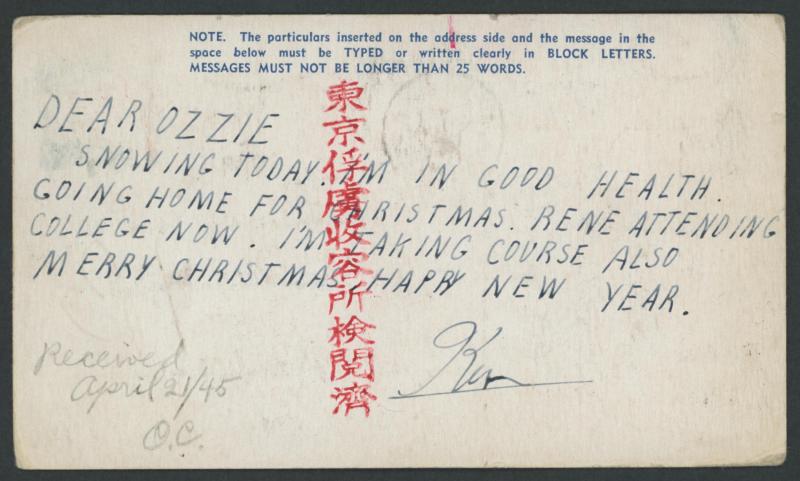 NOTE. The particulars inserted on the address side and the message in the
space below must be TYPED or written clearly in BLOCK LETTERS.
MESSAGES MUST NOT BE LONGER THAN 25 WORDS.
DEAR OZZIE
SNOWING TODAY. I'M IN GOOD HEALTH.
GOING HOME FOR CHRISTMAS. RENE ATTENDING
COLLEGE NOW. I'M TAKING COURSE ALSO
MERRY CHRISTMAS, HAPPY NEW YEAR.
Ken
東京俘虜收容所檢閱濟
Received
April 21/45
O.C.